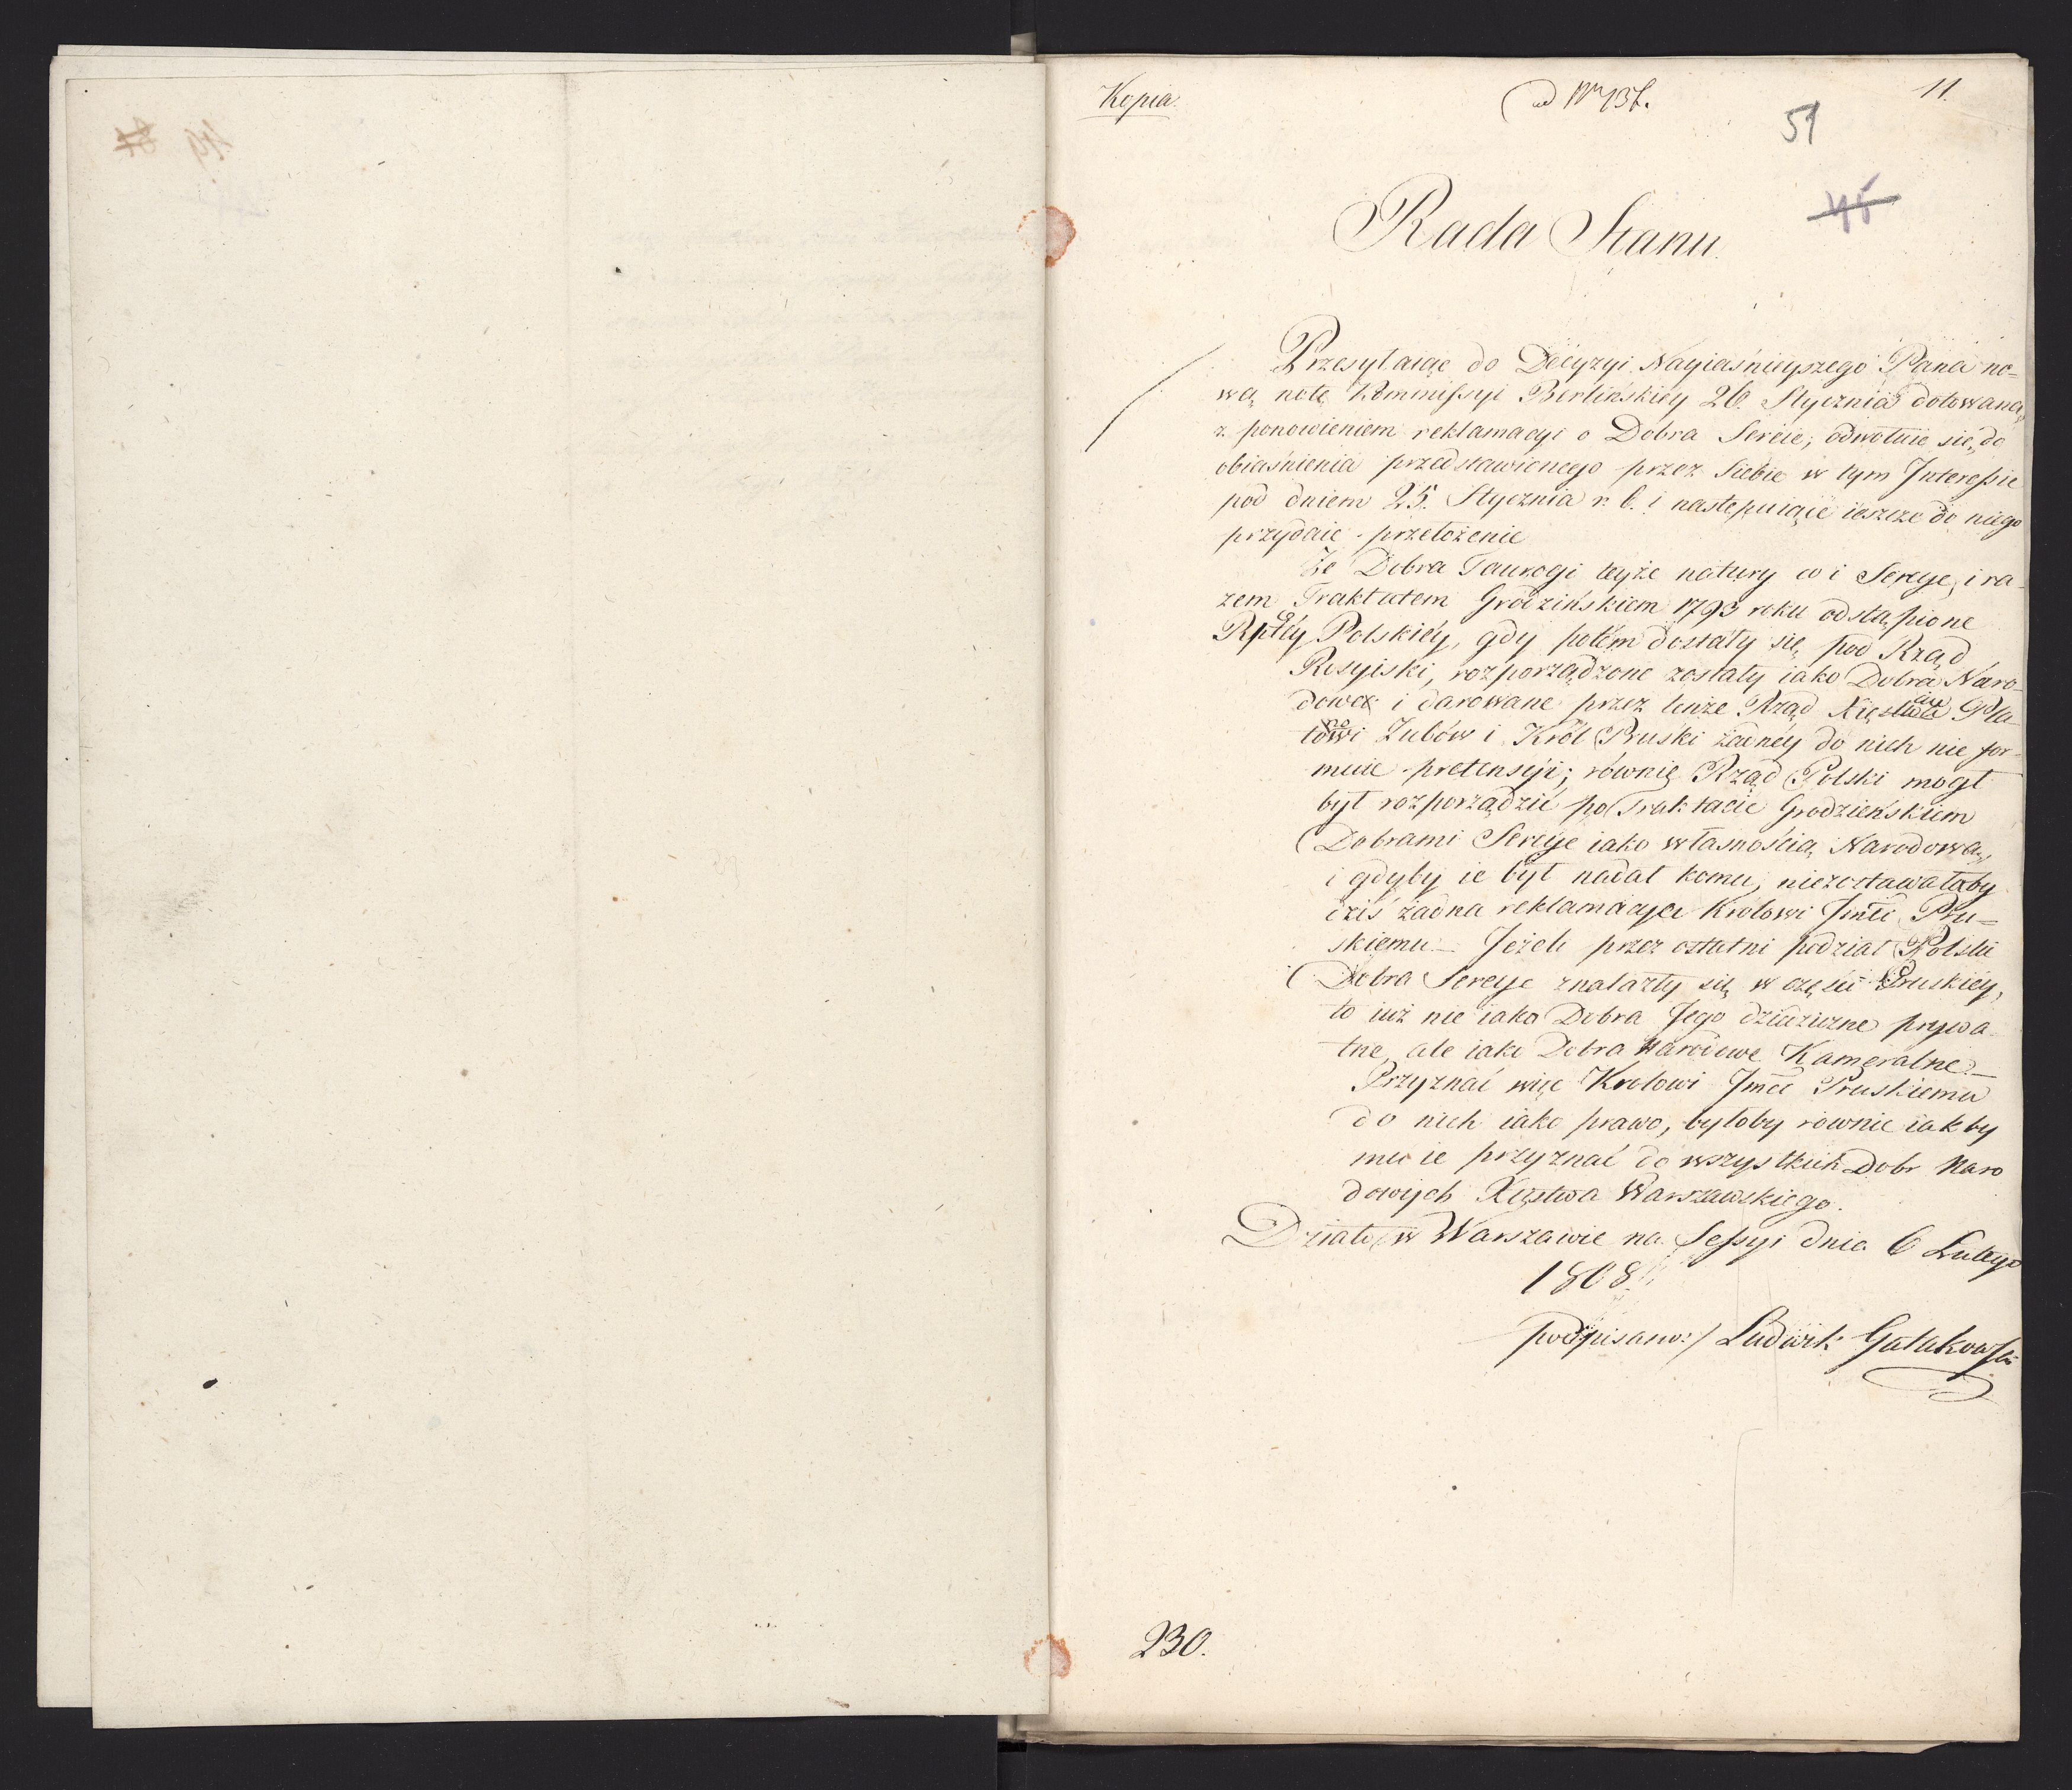 Kopia.
ad Nr 136.
11.
51
45
Rada Stanu.
Przesyłaiąc do Decyzyi Nayiaśnieyszego Pana no-
wą notę Kommissyi Berlińskiey 26. Stycznia dotowaną,
z ponowieniem reklamacyi o Dobra Sereie; odwołuie się do
obiaśnienia przedstawionego przez Siebie w tym Interessie
pod dniem 25. Stycznia r. b. i następuiące ieszcze do niego
przydaie przełożenie
Że Dobra Taurogi teyże natury co i Sereye, i ra-
zem Traktatem Grodzińskiem 1793 roku odstąpione
Rpltéy Polskiéy, gdy potém dostały się pod Rząd
Rosyiski, rozporządzone zostały iako Dobra Naro-
dowe i darowane przez tenże Rząd Xięciu Pla-
tonowi Zubów i Król Pruski żadnéy do nich nie for-
muie pretensyi; równie Rząd Polski mogł
był rozporządzić po Traktacie Grodzieńskiem
Dobrami Sereye iako własnością Narodową,
i gdyby ie był nadał komu, niezostawałaby
dziś żadna reklamacya Krolowi Jmći Pru-
skiemu – Jeżeli przez ostatni podział Polski
Dobra Sereye znalazły się w części Pruskiéy,
to iuż nie iako Dobra Jego dziedziczne prywa-
tne, ale iako Dobra Narodowe Kameralne –
Przyznać więc Krolowi Jmći Pruskiemu
do nich iako prawo, byłoby równie iak by
mu ie przyznać do wszystkich Dobr Naro
dowych Xięstwa Warszawskiego.
Działo w Warszawie na Sessyi dnia 6 Lutego
1808.
podpisano:/ Ludwik Gutakowski
230.